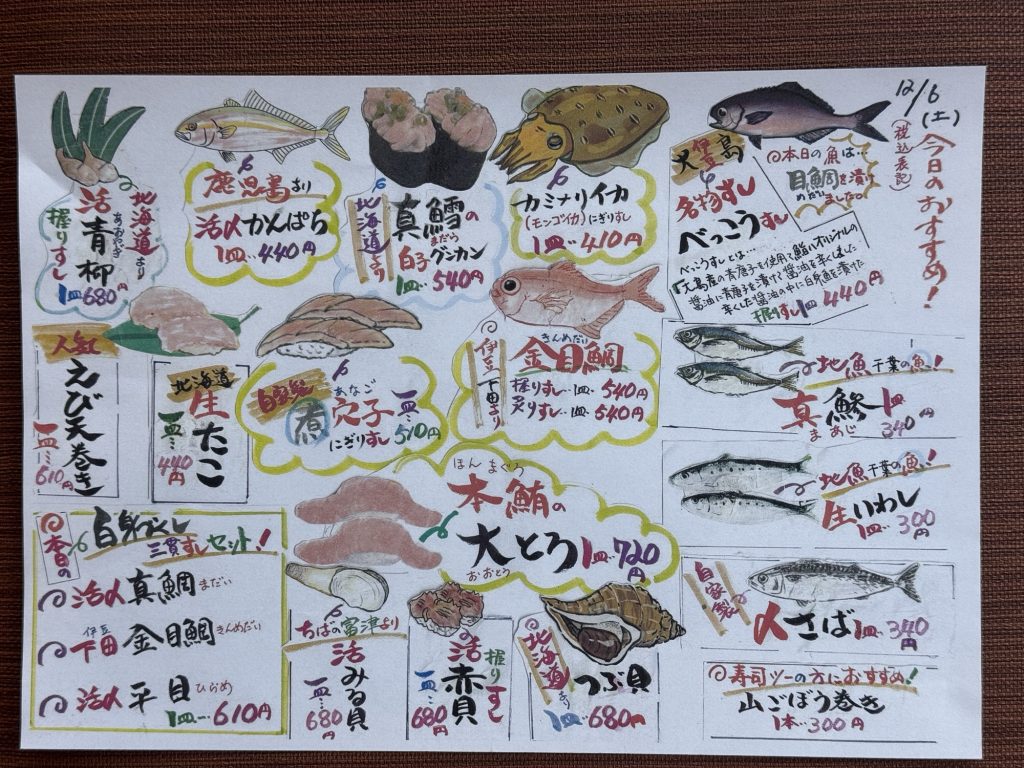 12/6
(土)
(税込表記)
今日のおすすめ!
北海道より
活青柳
あおやぎ
握りすし
1皿680円
鹿児島より
活〆かんぱち
1皿…440円
北海道より
真鱈の
まだら
白子グンカン
540円
カミナリイカ
(モンゴイカ)にぎりすし
1皿…410円
伊豆
大島
の
名物すし
べっこうすし
本日の魚は…
目鯛を漬け
めだい
ました。
べっこうすしとは…
醤油に青唐子を漬けて醤油を辛くしました
辛くした醤油の中に白身魚を漬けた
握りすし1皿440円
人気
えび天巻き
一皿…610円
北海道
生たこ
一皿…440円
自家製
煮穴子
あなご
にぎりすし
一皿…510円
伊豆下田より
きんめだい
金目鯛
握りすし…1皿…540円
炙りすし…1皿…540円
地魚千葉の魚!
真鯵
まあじ
1皿
340
地魚千葉の魚!
生いわし
1皿…300円
自家製の
〆さば1皿…340円
ほんまぐろ
本鮪の
大とろ
おおとろ
1皿…720円
本日の
白身づくし
三貫すしセット!
活〆真鯛まだい
伊豆
下田金目鯛きんめだい
活〆平目ひらめ
1皿…610円
ちばの富津より
活みる貝
一皿…680円
の
活赤貝
握りすし
一皿…680円
北海道より
つぶ貝
1皿…680円
寿司ツーの方におすすめ!
山ごぼう巻き
1本…300円